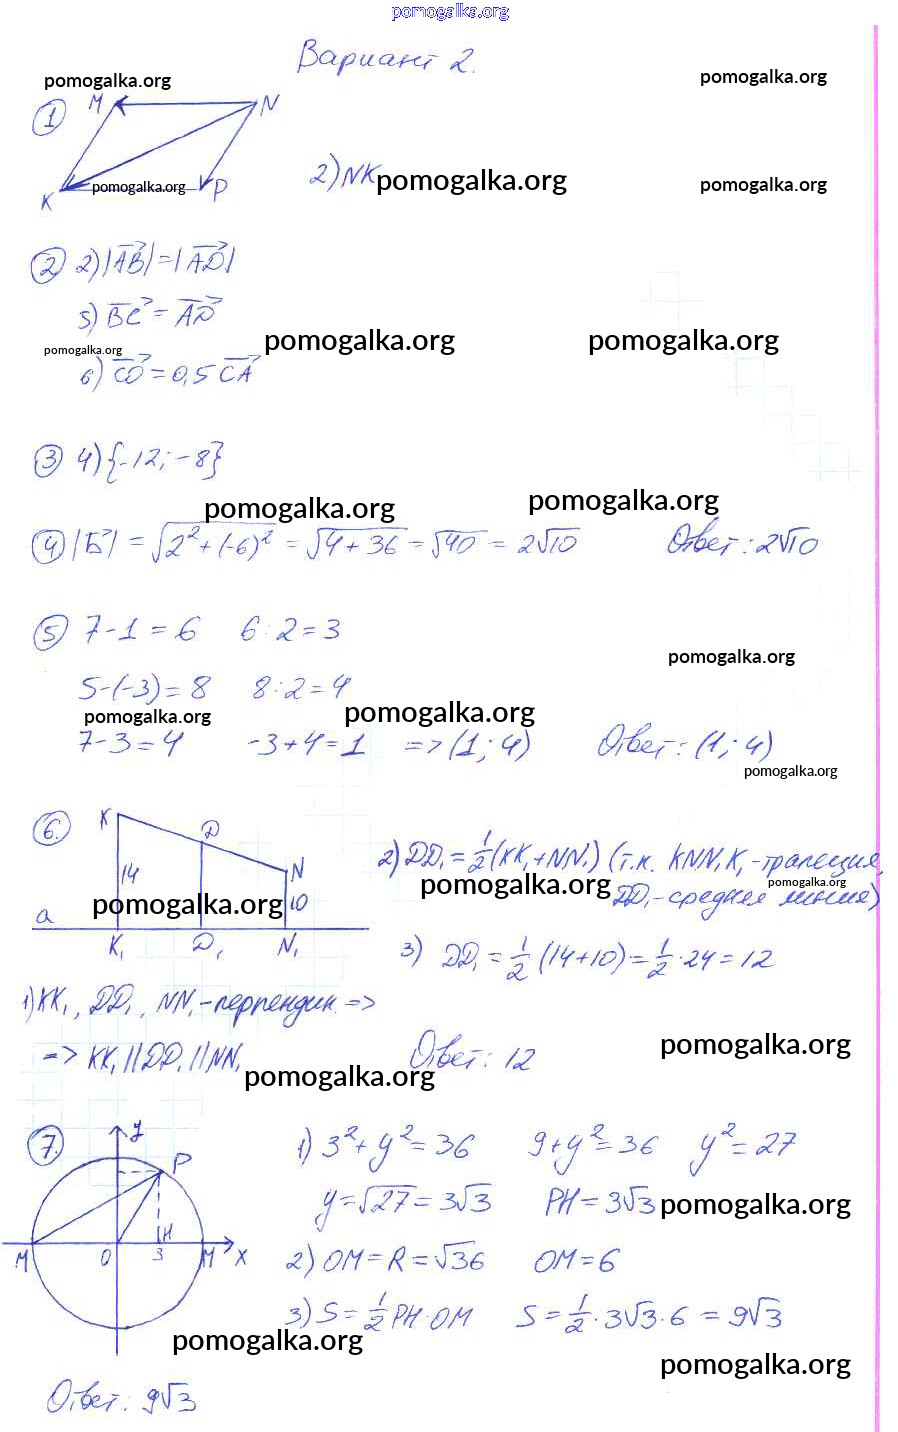 pomogalka.org
Вариант 2.
pomogalka.org pomogalka.org
① M N
K pomogalka.org P
2) NK pomogalka.org pomogalka.org
② 2) |AB| = |AD|
5) BC = AD
pomogalka.org pomogalka.org
pomogalka.org
6) CO = 0,5 CA
③ 4) {-12; -8}
pomogalka.org pomogalka.org
④ |Б| = √2² + (-6)² = √4 + 36 = √40 = 2√10 Ответ: 2√10
⑤ 7 - 1 = 6 6 : 2 = 3
pomogalka.org
5 - (-3) = 8 8 : 2 = 4
pomogalka.org pomogalka.org
7 - 3 = 4 -3 + 4 = 1 => (1; 4) Ответ: (1; 4)
pomogalka.org
⑥. K D N
14 10
a K₁ D₁ N₁
pomogalka.org
2) DD₁ = 1/2 (KK₁ + NN₁) (т.к. KNN₁K₁ - трапеция,
pomogalka.org pomogalka.org
DD₁ - средняя линия)
3) DD₁ = 1/2 (14 + 10) = 1/2 · 24 = 12
1) KK₁, DD₁, NN₁ - перпендик. =>
=> KK₁ || DD₁ || NN₁
Ответ: 12
pomogalka.org
pomogalka.org
⑦. y P
M O 3 H M x
1) 3² + y² = 36 9 + y² = 36 y² = 27
y = √27 = 3√3 PH = 3√3 pomogalka.org
2) OM = R = √36 OM = 6
3) S = 1/2 PH · OM S = 1/2 · 3√3 · 6 = 9√3
pomogalka.org
pomogalka.org
Ответ: 9√3